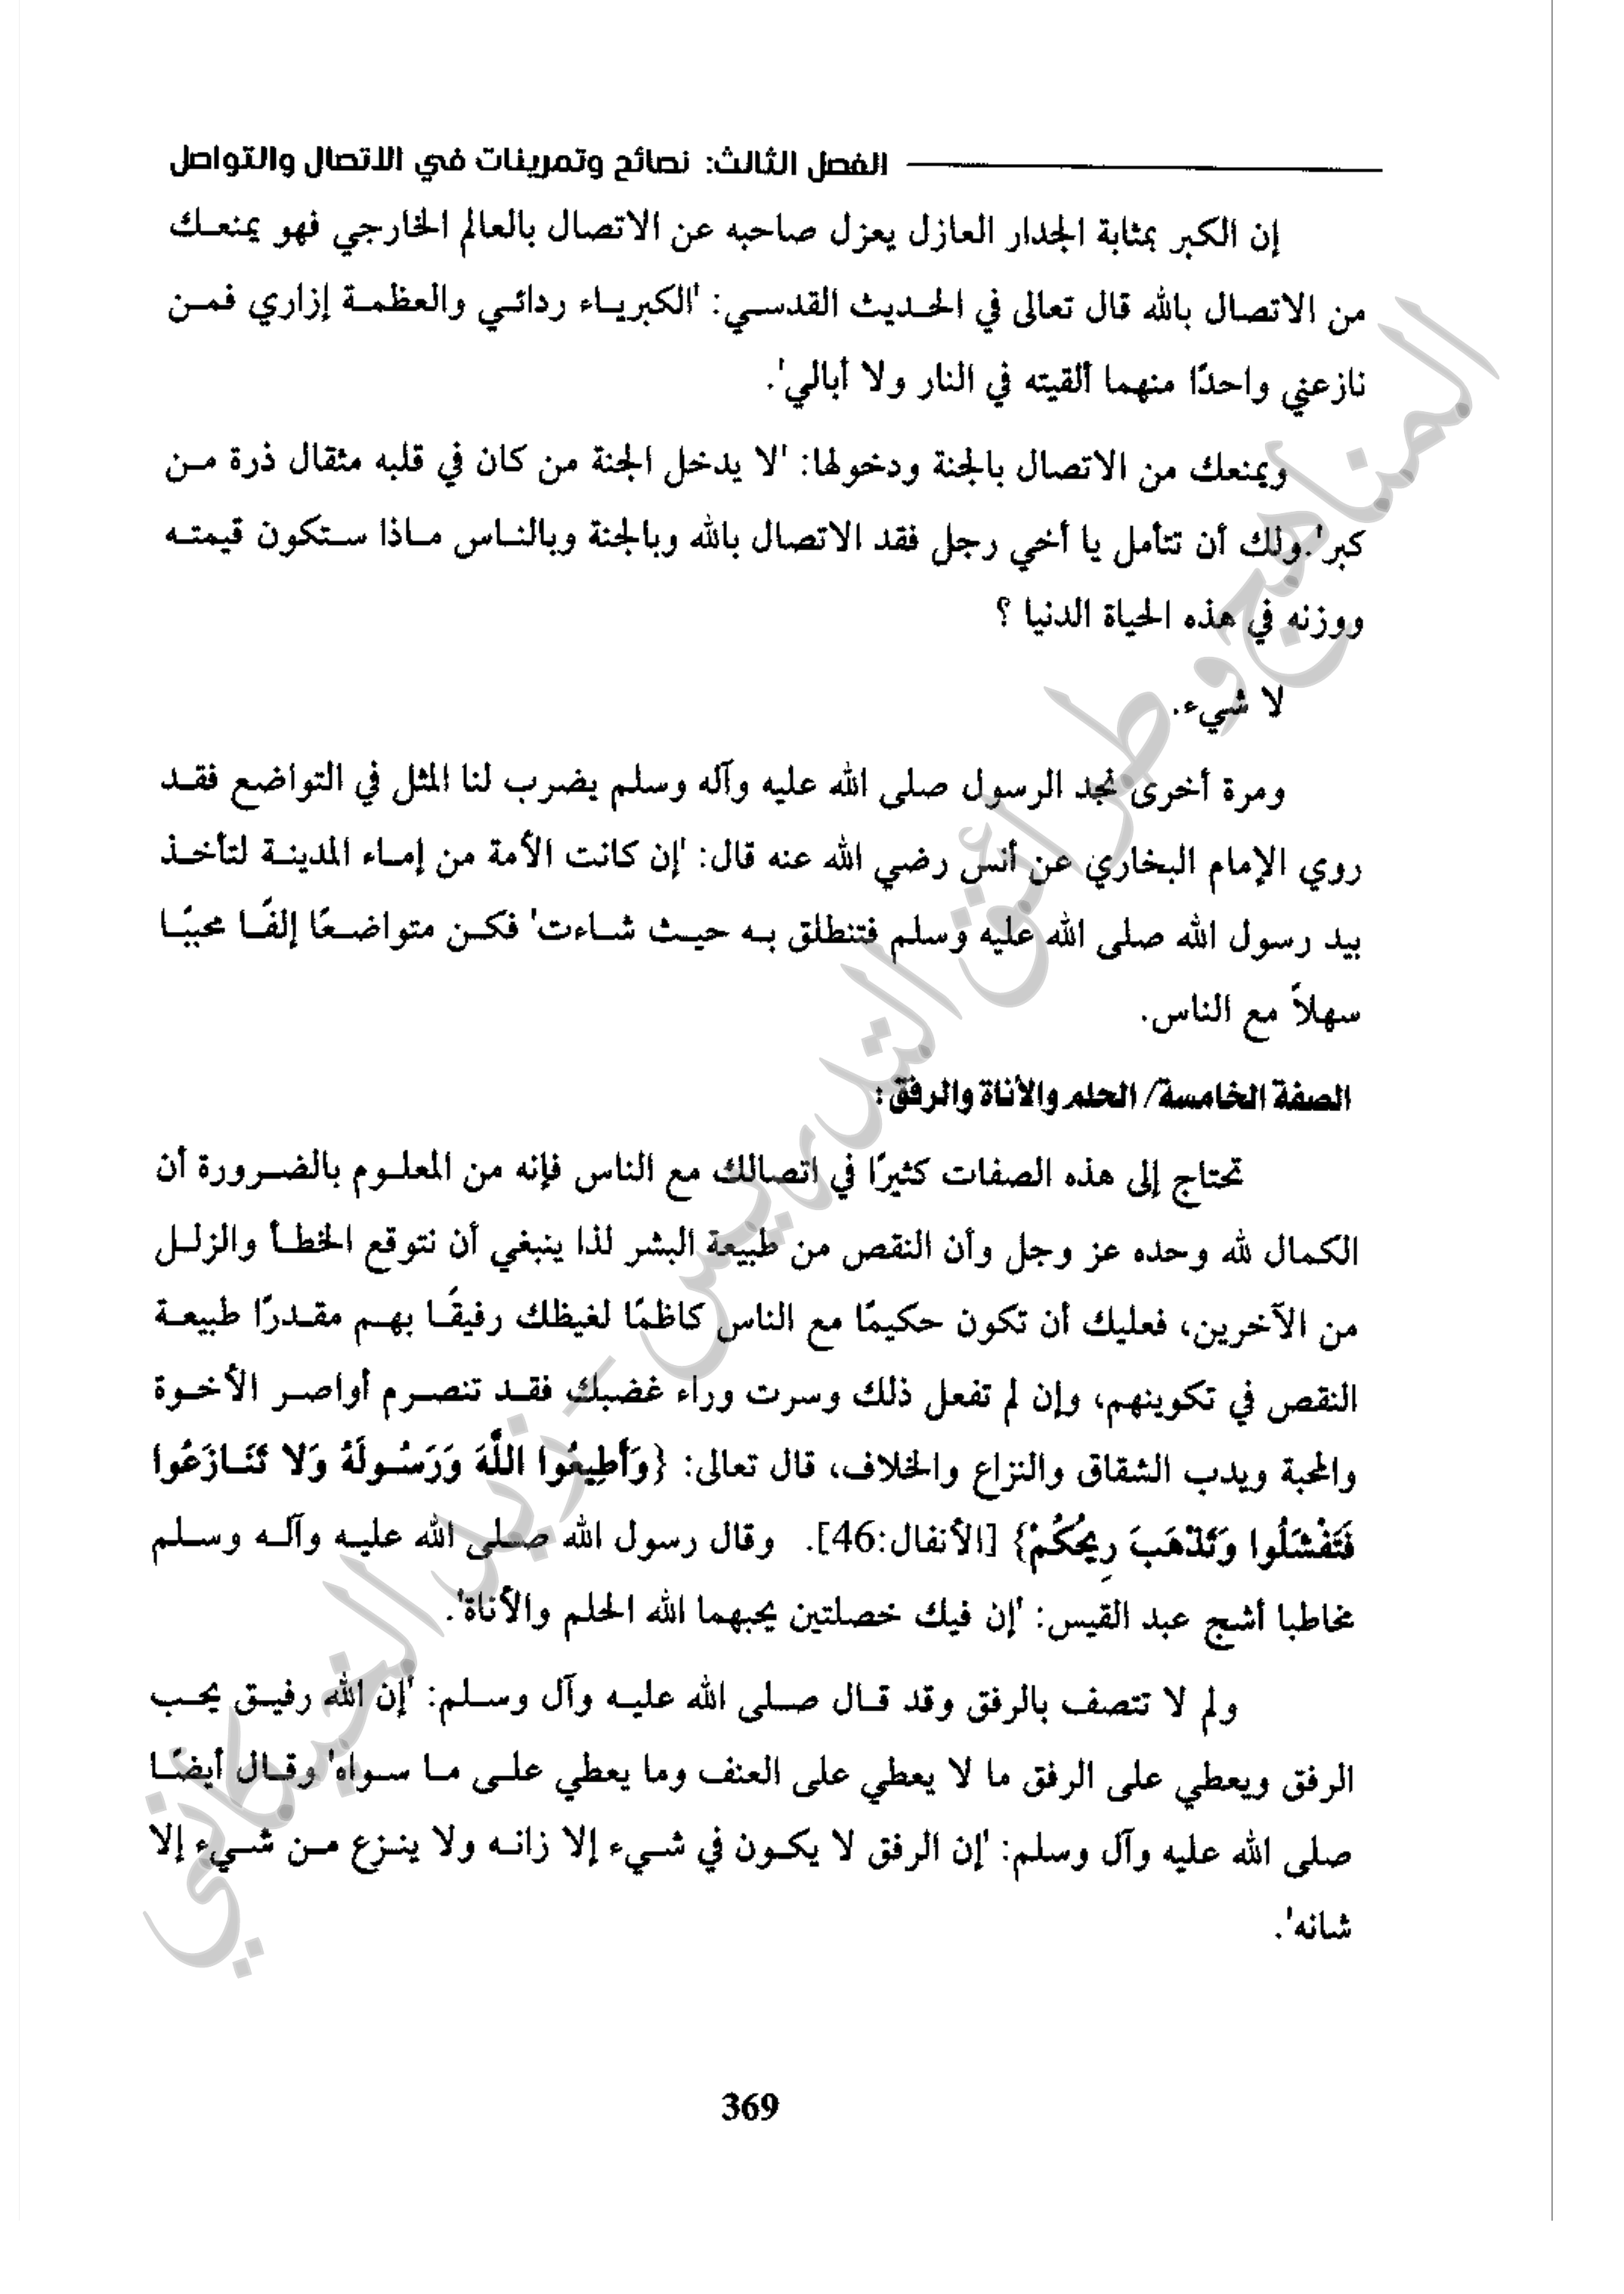 الفصل الثالث: نصائح وتمرينات في الاتصال والتواصل
إن الكبر بمثابة الجدار العازل يعزل صاحبه عن الاتصال بالعالم الخارجي فهو يمنعك
من الاتصال بالله قال تعالى في الحديث القدسي: 'الكبرياء ردائي والعظمة إزاري فمن
نازعني واحدًا منهما ألقيته في النار ولا أبالي'.
ويمنعك من الاتصال بالجنة ودخولها: 'لا يدخل الجنة من كان في قلبه مثقال ذرة من
كبر'.ولك أن تتأمل يا أخي رجل فقد الاتصال بالله وبالجنة وبالناس ماذا ستكون قيمته
ووزنه في هذه الحياة الدنيا ؟
لا شيء.
ومرة أخرى نجد الرسول صلى الله عليه وآله وسلم يضرب لنا المثل في التواضع فقد
روي الإمام البخاري عن أنس رضي الله عنه قال: 'إن كانت الأمة من إماء المدينة لتأخذ
بيد رسول الله صلى الله عليه وسلم فتنطلق به حيث شاءت' فكن متواضعًا إلفًا محببًا
سهلاً مع الناس.
الصفة الخامسة/ الحلم والأناة والرفق:
تحتاج إلى هذه الصفات كثيرًا في اتصالك مع الناس فإنه من المعلوم بالضرورة أن
الكمال لله وحده عز وجل وأن النقص من طبيعة البشر لذا ينبغي أن نتوقع الخطأ والزلل
من الآخرين، فعليك أن تكون حكيمًا مع الناس كاظمًا لغيظك رفيقًا بهم مقدرًا طبيعة
النقص في تكوينهم، وإن لم تفعل ذلك وسرت وراء غضبك فقد تنصرم أواصر الأخوة
والمحبة ويدب الشقاق والنزاع والخلاف، قال تعالى: {وَأَطِيعُوا اللَّهَ وَرَسُولَهُ وَلا تَنَازَعُوا
فَتَفْشَلُوا وَتَذْهَبَ رِيحُكُمْ} [الأنفال:46]. وقال رسول الله صلى الله عليه وآله وسلم
مخاطبا أشج عبد القيس: 'إن فيك خصلتين يحبهما الله الحلم والأناة'.
ولم لا تتصف بالرفق وقد قال صلى الله عليه وآل وسلم: 'إن الله رفيق يحب
الرفق ويعطي على الرفق ما لا يعطي على العنف وما يعطي على ما سواه' وقال أيضًا
صلى الله عليه وآل وسلم: 'إن الرفق لا يكون في شيء إلا زانه ولا ينزع من شيء إلا
شانه'.
369
المناهج و طرائق التدريس - زيد الخيكاني